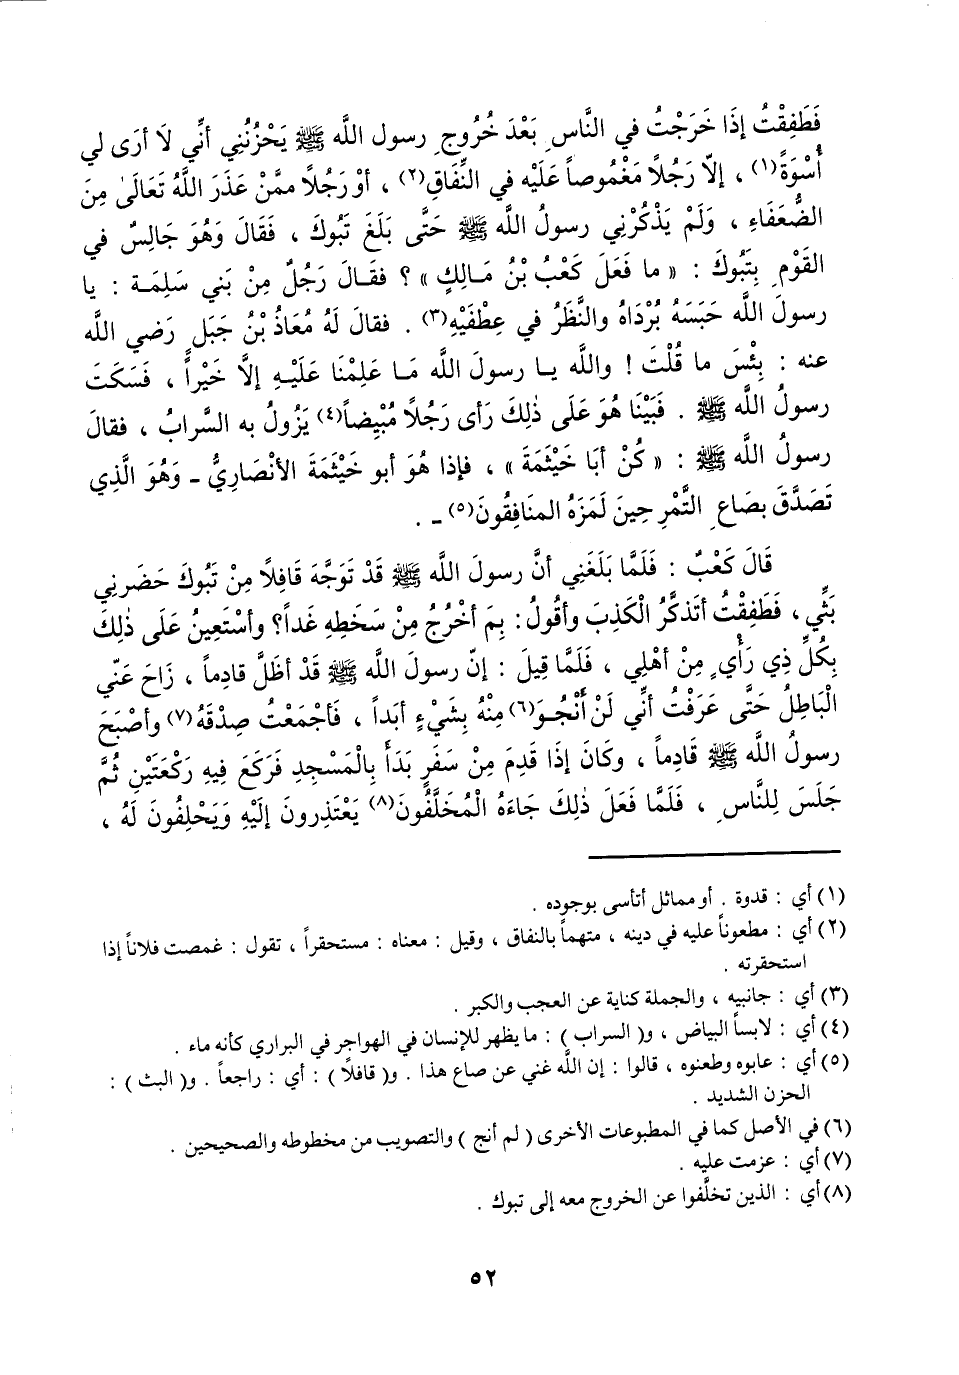 فَطَفِقْتُ إذَا خَرَجْتُ في النَّاسِ بَعْدَ خُرُوجِ رسول اللَّه ﷺ يَحْزُنُنِي أنِّي لَا أرَى لي
أُسْوَةً(١) ، إلّا رَجُلًا مَغْمُوصاً عَلَيْه في النِّفَاقِ(٢) ، أوْ رَجُلًا ممَّنْ عَذَرَ اللَّهُ تَعَالَىٰ مِنَ
الضُّعَفَاءِ ، وَلَمْ يَذْكُرْنِي رسولُ اللَّه ﷺ حَتَّى بَلَغَ تَبُوكَ ، فَقَالَ وَهُوَ جَالِسٌ في
القَوْمِ بِتَبُوكَ : « ما فَعَلَ كَعْبُ بْنُ مَالِكٍ » ؟ فقَالَ رَجُلٌ مِنْ بَني سَلِمَة : يا
رسولَ اللَّه حَبَسَهُ بُرْدَاهُ والنَّظَرُ في عِطْفَيْهِ(٣) . فقالَ لَهُ مُعَاذُ بْنُ جَبَلٍ رَضي اللَّه
عنه : بِئْسَ ما قُلْتَ ! واللَّه يا رسولَ اللَّه مَا عَلِمْنَا عَلَيْهِ إلَّا خَيْراً ، فَسَكَتَ
رسولُ اللَّه ﷺ . فَبَيْنَا هُوَ عَلَى ذٰلِكَ رَأى رَجُلًا مُبْيِضاً(٤) يَزُولُ به السَّرابُ ، فقالَ
رسولُ اللَّه ﷺ : « كُنْ أبَا خَيْثَمَةَ » ، فإذا هُوَ أبو خَيْثَمَةَ الأنْصَارِيُّ ـ وَهُوَ الَّذِي
تَصَدَّقَ بصَاعِ التَّمْرِ حِينَ لَمَزَهُ المنَافِقُونَ(٥) ـ .
قَالَ كَعْبٌ : فَلَمَّا بَلَغَنِي أنَّ رسولَ اللَّه ﷺ قَدْ تَوَجَّهَ قَافِلًا مِنْ تَبُوكَ حَضَرنِي
بَثِّي ، فَطَفِقْتُ أتَذكَّرُ الْكَذِبَ وأقُولُ : بِمَ أخْرُجُ مِنْ سَخَطِهِ غَداً؟ وأسْتَعِينُ عَلَى ذٰلِكَ
بِكُلِّ ذِي رَأْيٍ مِنْ أهْلِي ، فَلَمَّا قِيلَ : إنّ رسولَ اللَّه ﷺ قَدْ أظَلَّ قادِماً ، زَاحَ عَنّي
الْبَاطِلُ حَتَّى عَرَفْتُ أنِّي لَنْ أنْجُوَ(٦) مِنْهُ بِشَيْءٍ أبَداً ، فَأجْمَعْتُ صِدْقَهُ(٧) وأصْبَحَ
رسولُ اللَّه ﷺ قَادِماً ، وكَانَ إذَا قَدِمَ مِنْ سَفَرٍ بَدَأَ بِالْمَسْجِدِ فَرَكَعَ فِيهِ رَكْعَتَيْنِ ثُمَّ
جَلَسَ لِلنَّاسِ ، فَلَمَّا فَعَلَ ذٰلِكَ جَاءَهُ الْمُخَلَّفُونَ(٨) يَعْتَذِرونَ إلَيْهِ وَيَحْلِفُونَ لَهُ ،
(١) أي : قدوة . أو مماثل أتأسى بوجوده .
(٢) أي : مطعوناً عليه في دينه ، متهماً بالنفاق ، وقيل : معناه : مستحقراً ، تقول : غمصت فلاناً إذا
استحقرته .
(٣) أي : جانبيه ، والجملة كناية عن العجب والكبر .
(٤) أي : لابساً البياض ، و( السراب ) : ما يظهر للإنسان في الهواجر في البراري كأنه ماء .
(٥) أي : عابوه وطعنوه ، قالوا : إن اللَّه غني عن صاع هذا . و( قافلًا ) : أي : راجعاً . و( البث ) :
الحزن الشديد .
(٦) في الأصل كما في المطبوعات الأخرى ( لم أنج ) والتصويب من مخطوطه والصحيحين .
(٧) أي : عزمت عليه .
(٨) أي : الذين تخلَّفوا عن الخروج معه إلى تبوك .
٥٢